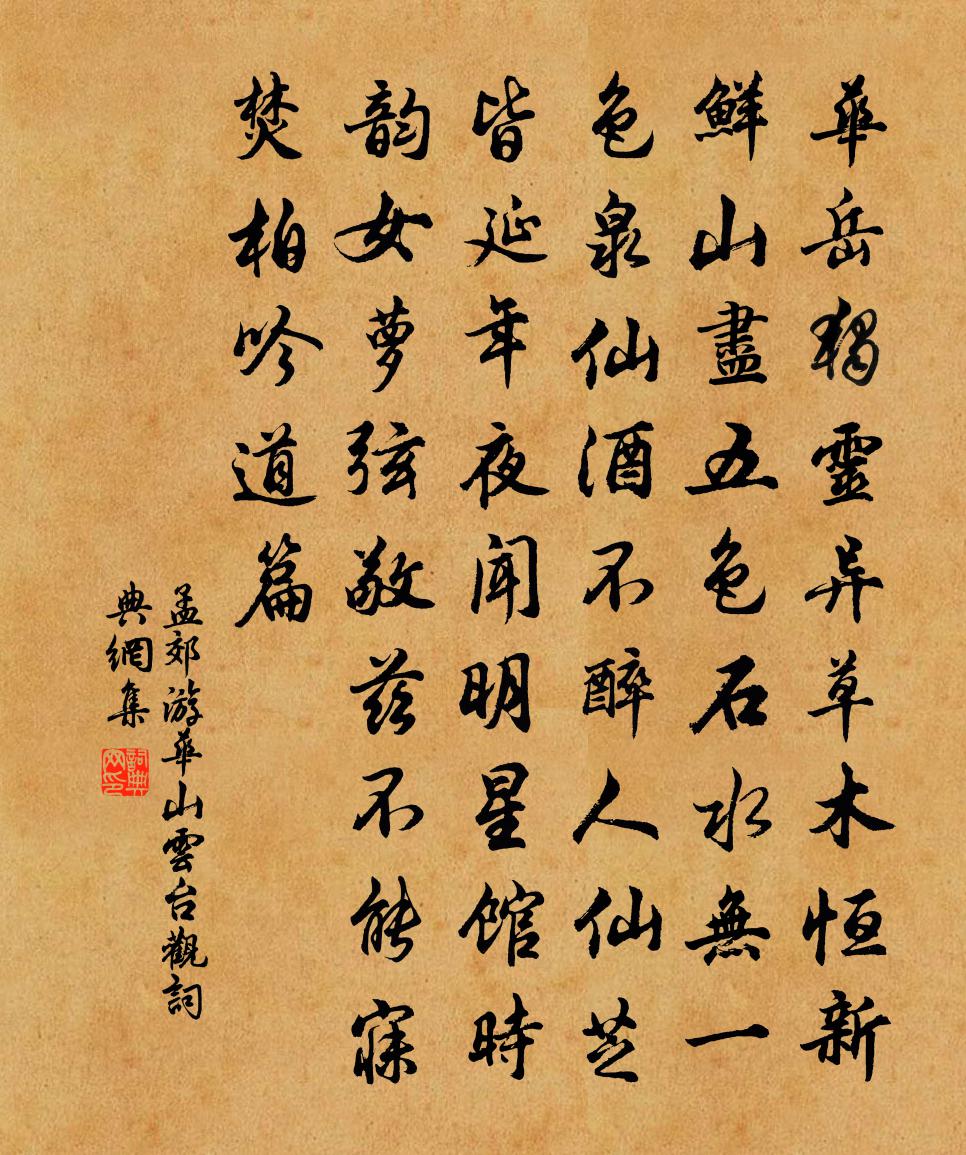 華岳獨靈异草木恒新
鮮山盡五色石水無一
色泉仙酒不醉人仙芝
皆延年夜聞明星馆時
韵女夢弦敬兹不能寐
焚柏吟道篇
孟郊游華山雲台觀詞
典網集
詞典网印